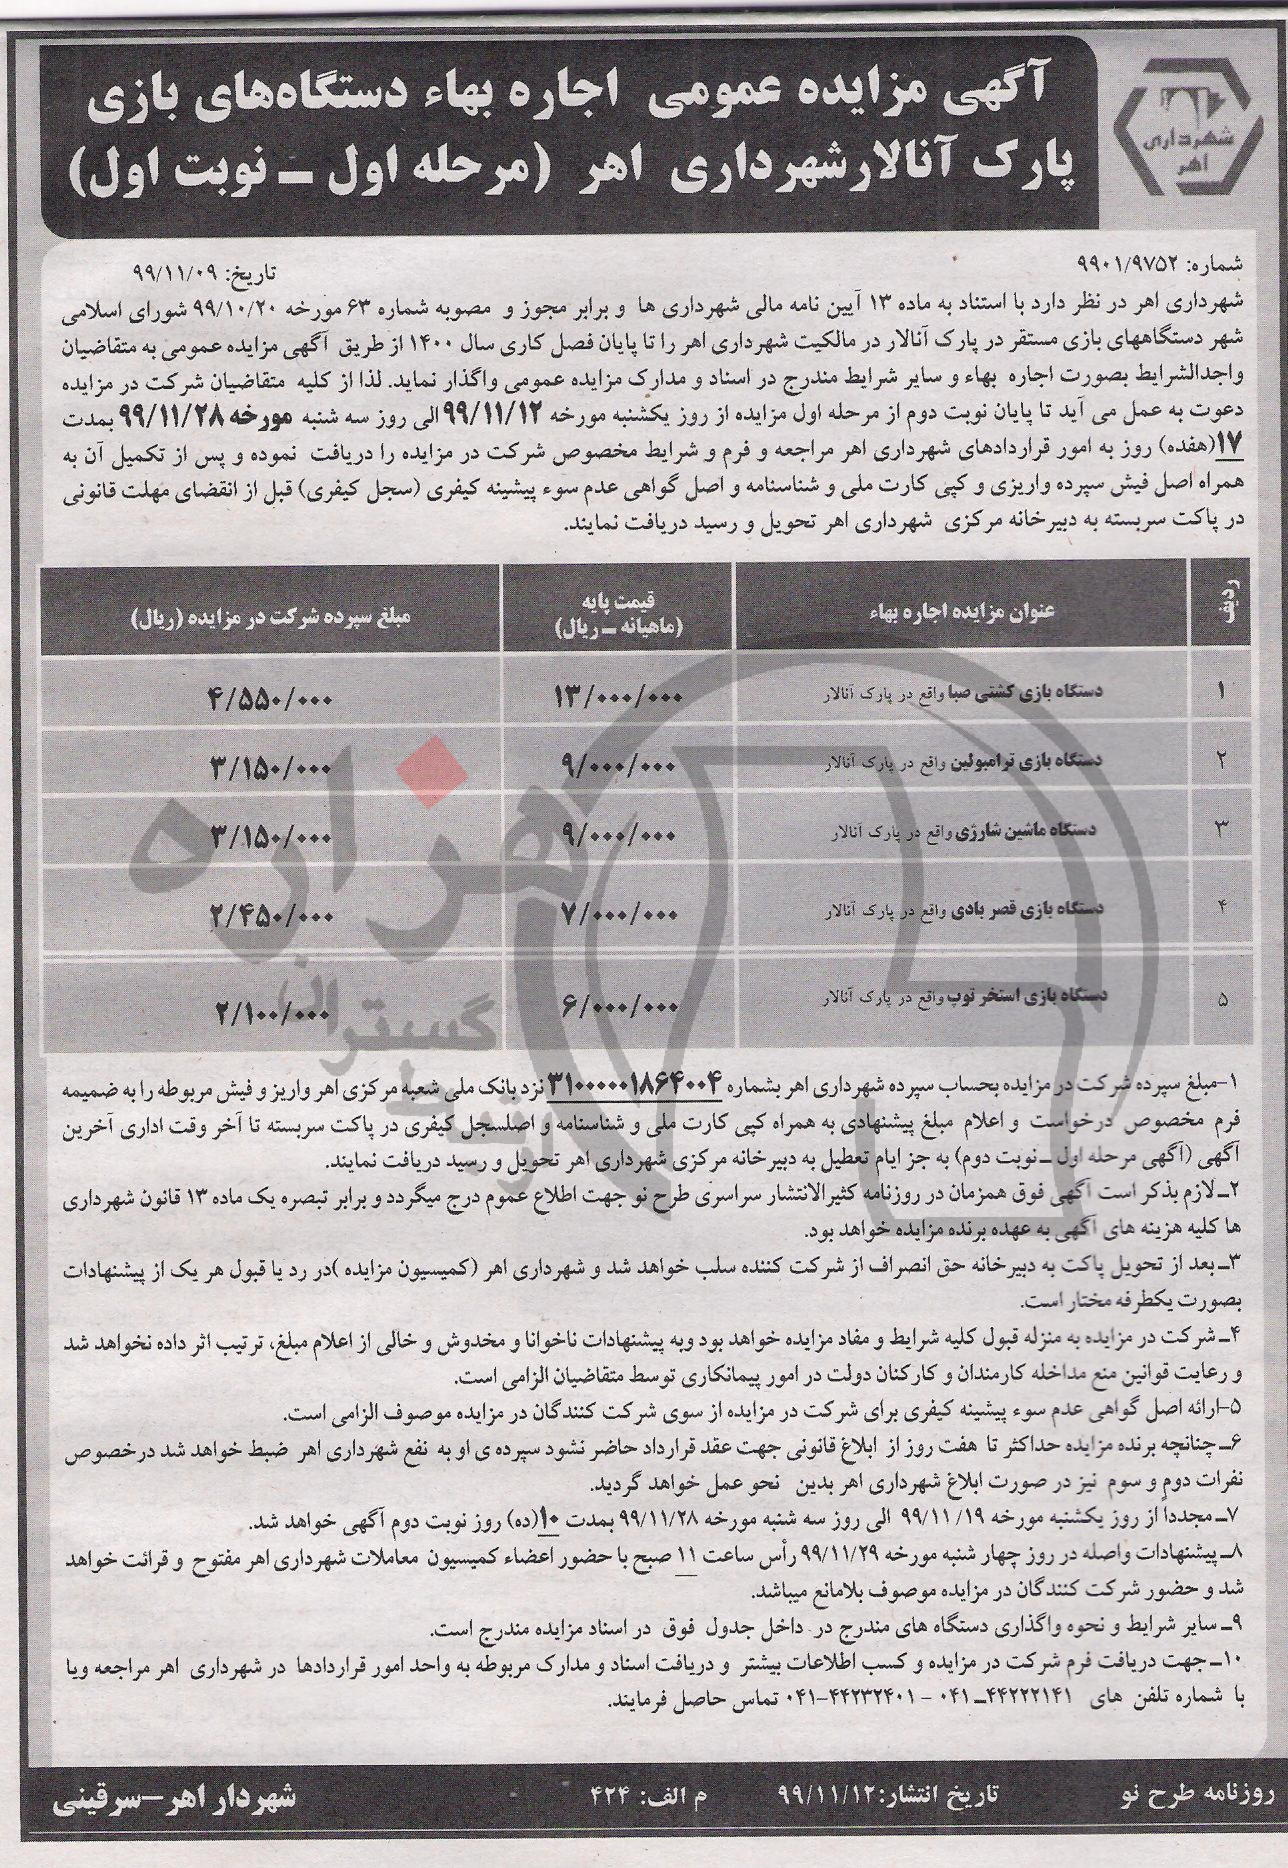 آگهی مزایده عمومی اجاره بهاء دستگاه‌های بازی
پارک آنالارشهرداری اهر (مرحله اول ـ نوبت اول)
شهرداری
اهر
شماره: ۹۹۰۱/۹۷۵۲
تاریخ: ۹۹/۱۱/۰۹
شهرداری اهر در نظر دارد با استناد به ماده ۱۳ آیین نامه مالی شهرداری ها و برابر مجوز و مصوبه شماره ۶۳ مورخه ۹۹/۱۰/۲۰ شورای اسلامی
شهر دستگاههای بازی مستقر در پارک آنالار در مالکیت شهرداری اهر را تا پایان فصل کاری سال ۱۴۰۰ از طریق آگهی مزایده عمومی به متقاضیان
واجدالشرایط بصورت اجاره بهاء و سایر شرایط مندرج در اسناد و مدارک مزایده عمومی واگذار نماید. لذا از کلیه متقاضیان شرکت در مزایده
دعوت به عمل می آید تا پایان نوبت دوم از مرحله اول مزایده از روز یکشنبه مورخه ۹۹/۱۱/۱۲ الی روز سه شنبه مورخه ۹۹/۱۱/۲۸ بمدت
۱۷(هفده) روز به امور قراردادهای شهرداری اهر مراجعه و فرم و شرایط مخصوص شرکت در مزایده را دریافت نموده و پس از تکمیل آن به
همراه اصل فیش سپرده واریزی و کپی کارت ملی و شناسنامه و اصل گواهی عدم سوء پیشینه کیفری (سجل کیفری) قبل از انقضای مهلت قانونی
در پاکت سربسته به دبیرخانه مرکزی شهرداری اهر تحویل و رسید دریافت نمایند.
ردیف
عنوان مزایده اجاره بهاء
قیمت پایه
(ماهیانه ـ ریال)
مبلغ سپرده شرکت در مزایده (ریال)
۱ دستگاه بازی کشتی صبا واقع در پارک آنالار ۱۳/۰۰۰/۰۰۰ ۴/۵۵۰/۰۰۰
۲ دستگاه بازی ترامبولین واقع در پارک آنالار ۹/۰۰۰/۰۰۰ ۳/۱۵۰/۰۰۰
۳ دستگاه ماشین شارژی واقع در پارک آنالار ۹/۰۰۰/۰۰۰ ۳/۱۵۰/۰۰۰
۴ دستگاه بازی قصر بادی واقع در پارک آنالار ۷/۰۰۰/۰۰۰ ۲/۴۵۰/۰۰۰
۵ دستگاه بازی استخر توپ واقع در پارک آنالار ۶/۰۰۰/۰۰۰ ۲/۱۰۰/۰۰۰
هزاره
۱-مبلغ سپرده شرکت در مزایده بحساب سپرده شهرداری اهر بشماره ۳۱۰۰۰۰۰۱۸۶۴۰۰۴ نزد بانک ملی شعبه مرکزی اهر واریز و فیش مربوطه را به ضمیمه
فرم مخصوص درخواست و اعلام مبلغ پیشنهادی به همراه کپی کارت ملی و شناسنامه و اصلسجل کیفری در پاکت سربسته تا آخر وقت اداری آخرین
آگهی (آگهی مرحله اول ـ نوبت دوم) به جز ایام تعطیل به دبیرخانه مرکزی شهرداری اهر تحویل و رسید دریافت نمایند.
۲ـ لازم بذکر است آگهی فوق همزمان در روزنامه کثیرالانتشار سراسری طرح نو جهت اطلاع عموم درج میگردد و برابر تبصره یک ماده ۱۳ قانون شهرداری
ها کلیه هزینه های آگهی به عهده برنده مزایده خواهد بود.
۳ـ بعد از تحویل پاکت به دبیرخانه حق انصراف از شرکت کننده سلب خواهد شد و شهرداری اهر (کمیسیون مزایده )در رد یا قبول هر یک از پیشنهادات
بصورت یکطرفه مختار است.
۴ـ شرکت در مزایده به منزله قبول کلیه شرایط و مفاد مزایده خواهد بود وبه پیشنهادات ناخوانا و مخدوش و خالی از اعلام مبلغ، ترتیب اثر داده نخواهد شد
و رعایت قوانین منع مداخله کارمندان و کارکنان دولت در امور پیمانکاری توسط متقاضیان الزامی است.
۵-ارائه اصل گواهی عدم سوء پیشینه کیفری برای شرکت در مزایده از سوی شرکت کنندگان در مزایده موصوف الزامی است.
۶ـ چنانچه برنده مزایده حداکثر تا هفت روز از ابلاغ قانونی جهت عقد قرارداد حاضر نشود سپرده ی او به نفع شهرداری اهر ضبط خواهد شد درخصوص
نفرات دوم و سوم نیز در صورت ابلاغ شهرداری اهر بدین نحو عمل خواهد گردید.
۷ـ مجددا از روز یکشنبه مورخه ۹۹/۱۱/۱۹ الی روز سه شنبه مورخه ۹۹/۱۱/۲۸ بمدت ۱۰(ده) روز نوبت دوم آگهی خواهد شد.
۸ـ پیشنهادات واصله در روز چهار شنبه مورخه ۹۹/۱۱/۲۹ رأس ساعت ۱۱ صبح با حضور اعضاء کمیسیون معاملات شهرداری اهر مفتوح و قرائت خواهد
شد و حضور شرکت کنندگان در مزایده موصوف بلامانع میباشد.
۹ـ سایر شرایط و نحوه واگذاری دستگاه های مندرج در داخل جدول فوق در اسناد مزایده مندرج است.
۱۰ـ جهت دریافت فرم شرکت در مزایده و کسب اطلاعات بیشتر و دریافت اسناد و مدارک مربوطه به واحد امور قراردادها در شهرداری اهر مراجعه ویا
با شماره تلفن های ۴۴۲۲۲۱۴۱ـ ۰۴۱ - ۴۴۲۳۲۴۰۱-۰۴۱ تماس حاصل فرمایند.
روزنامه طرح نو
تاریخ انتشار:۹۹/۱۱/۱۲
م الف: ۴۲۴
شهردار اهر-سرقینی